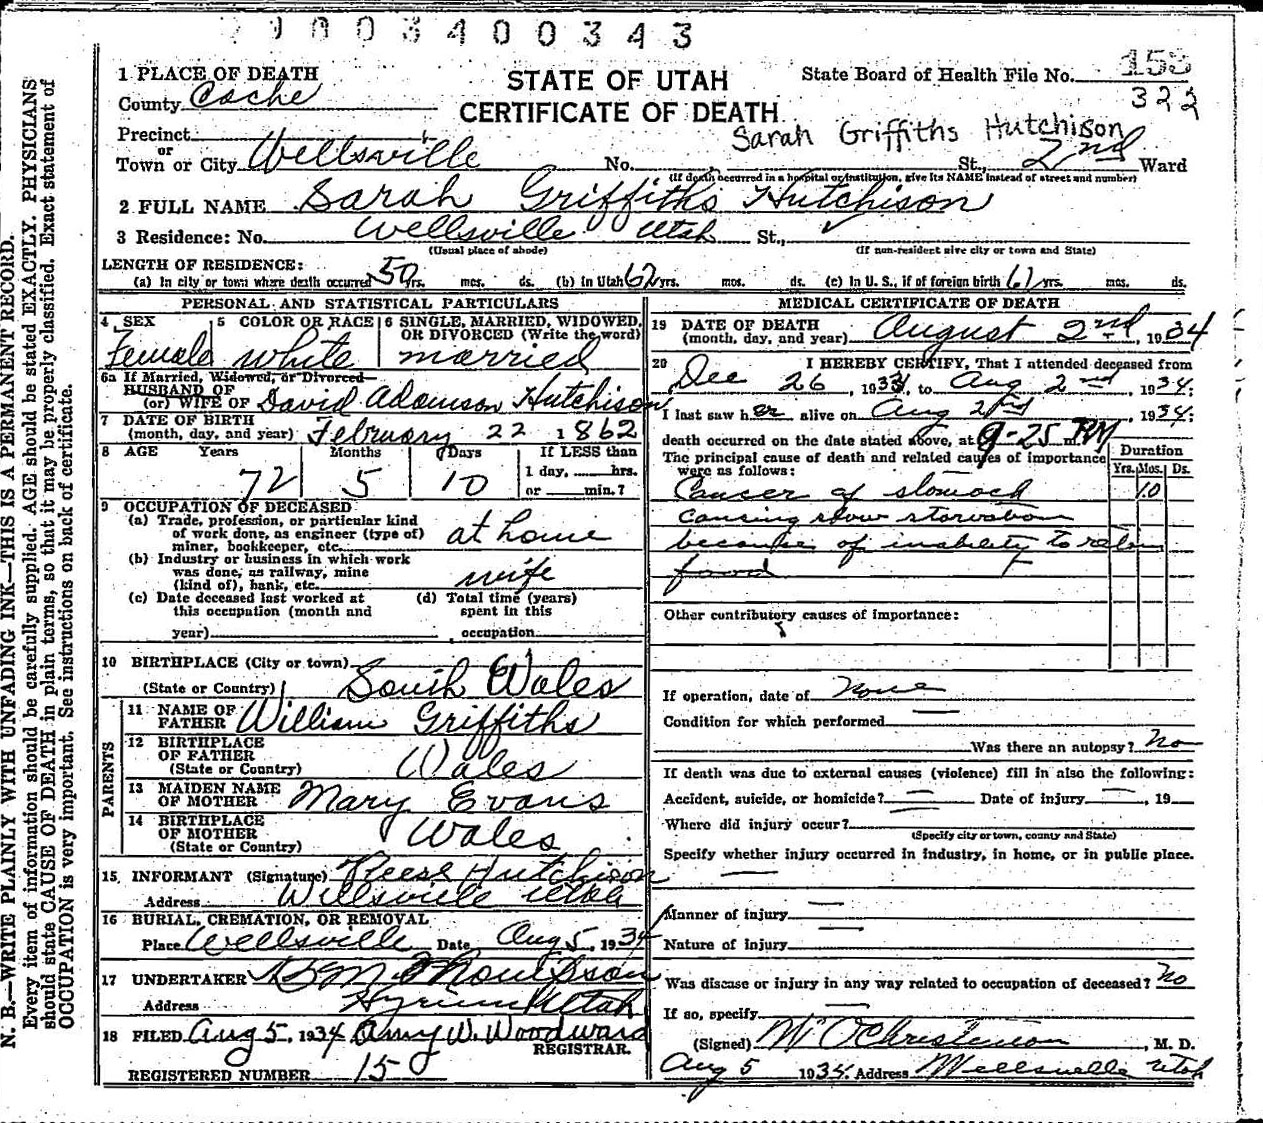 9003400343
1 PLACE OF DEATH
County Cache
STATE OF UTAH
CERTIFICATE OF DEATH
State Board of Health File No. 153
322
Sarah Griffiths Hutchison
Precinct
or
Town or City Wellsville No. St., 2nd Ward
(If death occurred in a hospital or institution, give its NAME instead of street and number)
2 FULL NAME Sarah Griffiths Hutchison
3 Residence: No. Wellsville Utah St.,
(Usual place of abode) (If non-resident give city or town and State)
LENGTH OF RESIDENCE:
(a) In city or town where death occurred 50 yrs. mos. ds. (b) In Utah 62 yrs. mos. ds. (c) In U. S., if of foreign birth 61 yrs. mos. ds.
PERSONAL AND STATISTICAL PARTICULARS
4 SEX Female
5 COLOR OR RACE white
6 SINGLE, MARRIED, WIDOWED,
OR DIVORCED (Write the word)
married
6a If Married, Widowed, or Divorced
HUSBAND OF
(or) WIFE OF David Adamson Hutchison
7 DATE OF BIRTH
(month, day, and year) February 22 1862
8 AGE Years Months Days If LESS than
1 day, hrs.
or min.?
72 5 10
9 OCCUPATION OF DECEASED
(a) Trade, profession, or particular kind
of work done, as engineer (type of)
miner, bookkeeper, etc. at home
(b) Industry or business in which work
was done, as railway, mine
(kind of), bank, etc. wife
(c) Date deceased last worked at
this occupation (month and
year)
(d) Total time (years)
spent in this
occupation
10 BIRTHPLACE (City or town)
(State or Country) South Wales
PARENTS
11 NAME OF
FATHER William Griffiths
12 BIRTHPLACE
OF FATHER
(State or Country) Wales
13 MAIDEN NAME
OF MOTHER Mary Evans
14 BIRTHPLACE
OF MOTHER
(State or Country) Wales
15 INFORMANT (Signature) Reese Hutchison
Address Wellsville Utah
16 BURIAL, CREMATION, OR REMOVAL
Place Wellsville Date Aug 5, 1934
17 UNDERTAKER Thompson
Address Hyrum Utah
18 FILED Aug 5, 1934 Amy W. Woodward
REGISTRAR.
REGISTERED NUMBER 15
MEDICAL CERTIFICATE OF DEATH
19 DATE OF DEATH
(month, day, and year) August 2nd, 1934
20 I HEREBY CERTIFY, That I attended deceased from
Dec 26, 1933, to Aug 2nd, 1934;
I last saw her alive on Aug 2nd, 1934;
death occurred on the date stated above, at 9-25 m. PM
The principal cause of death and related causes of importance
were as follows:
Duration
Yrs. Mos. Ds.
Cancer of stomach 10
causing slow starvation
because of inability to retain
food
Other contributory causes of importance:
If operation, date of none
Condition for which performed
Was there an autopsy? No
If death was due to external causes (violence) fill in also the following:
Accident, suicide, or homicide? Date of injury , 19
Where did injury occur?
(Specify city or town, county and State)
Specify whether injury occurred in industry, in home, or in public place.
Manner of injury
Nature of injury
Was disease or injury in any way related to occupation of deceased? No
If so, specify
(Signed) W O Christenson, M. D.
Aug 5 1934 Address Wellsville Utah
N. B.—WRITE PLAINLY WITH UNFADING INK—THIS IS A PERMANENT RECORD.
Every item of information should be carefully supplied. AGE should be stated EXACTLY. PHYSICIANS
should state CAUSE OF DEATH in plain terms, so that it may be properly classified. Exact statement of
OCCUPATION is very important. See instructions on back of certificate.